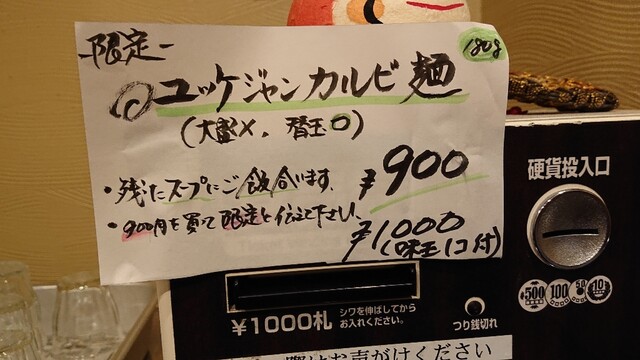 -限定-
180g
◎ユッケジャンカルビ麺
(大盛×、替玉○)
・残ったスープにご飯合います。
¥900
・900円を買て限定と伝えて下さい。
¥1000
(味玉1コ付)
硬貨投入口
500 100 50 10
¥1000札
シワを伸ばしてから
お入れください。
つり銭切れ
はお声がけください